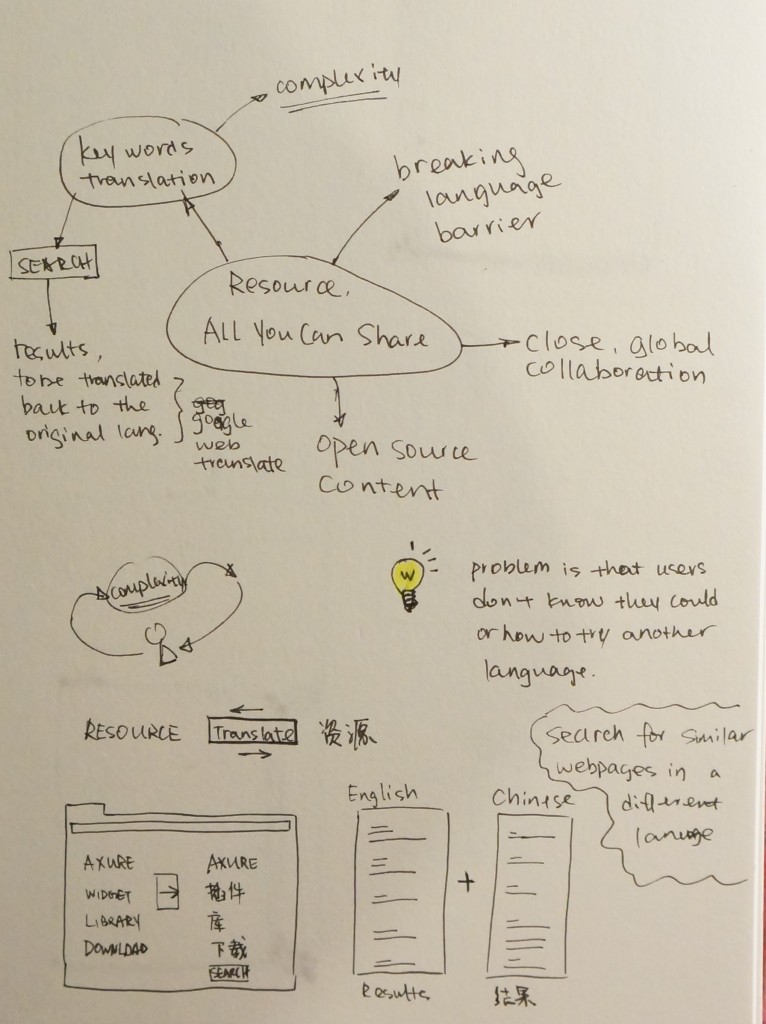 complexity
key words
translation
breaking
language
barrier
SEARCH
Resource.
All You Can Share
close, global
collaboration
results,
to be translated
back to the
original lang.
google
web
translate
open source
content
complexity
W
problem is that users
don't know they could
or how to try another
language.
RESOURCE Translate 资源
search for similar
webpages in a
different
English
Chinese
AXURE AXURE
WIDGET 插件
LIBRARY 库
DOWNLOAD 下载
SEARCH
+
Results
结果